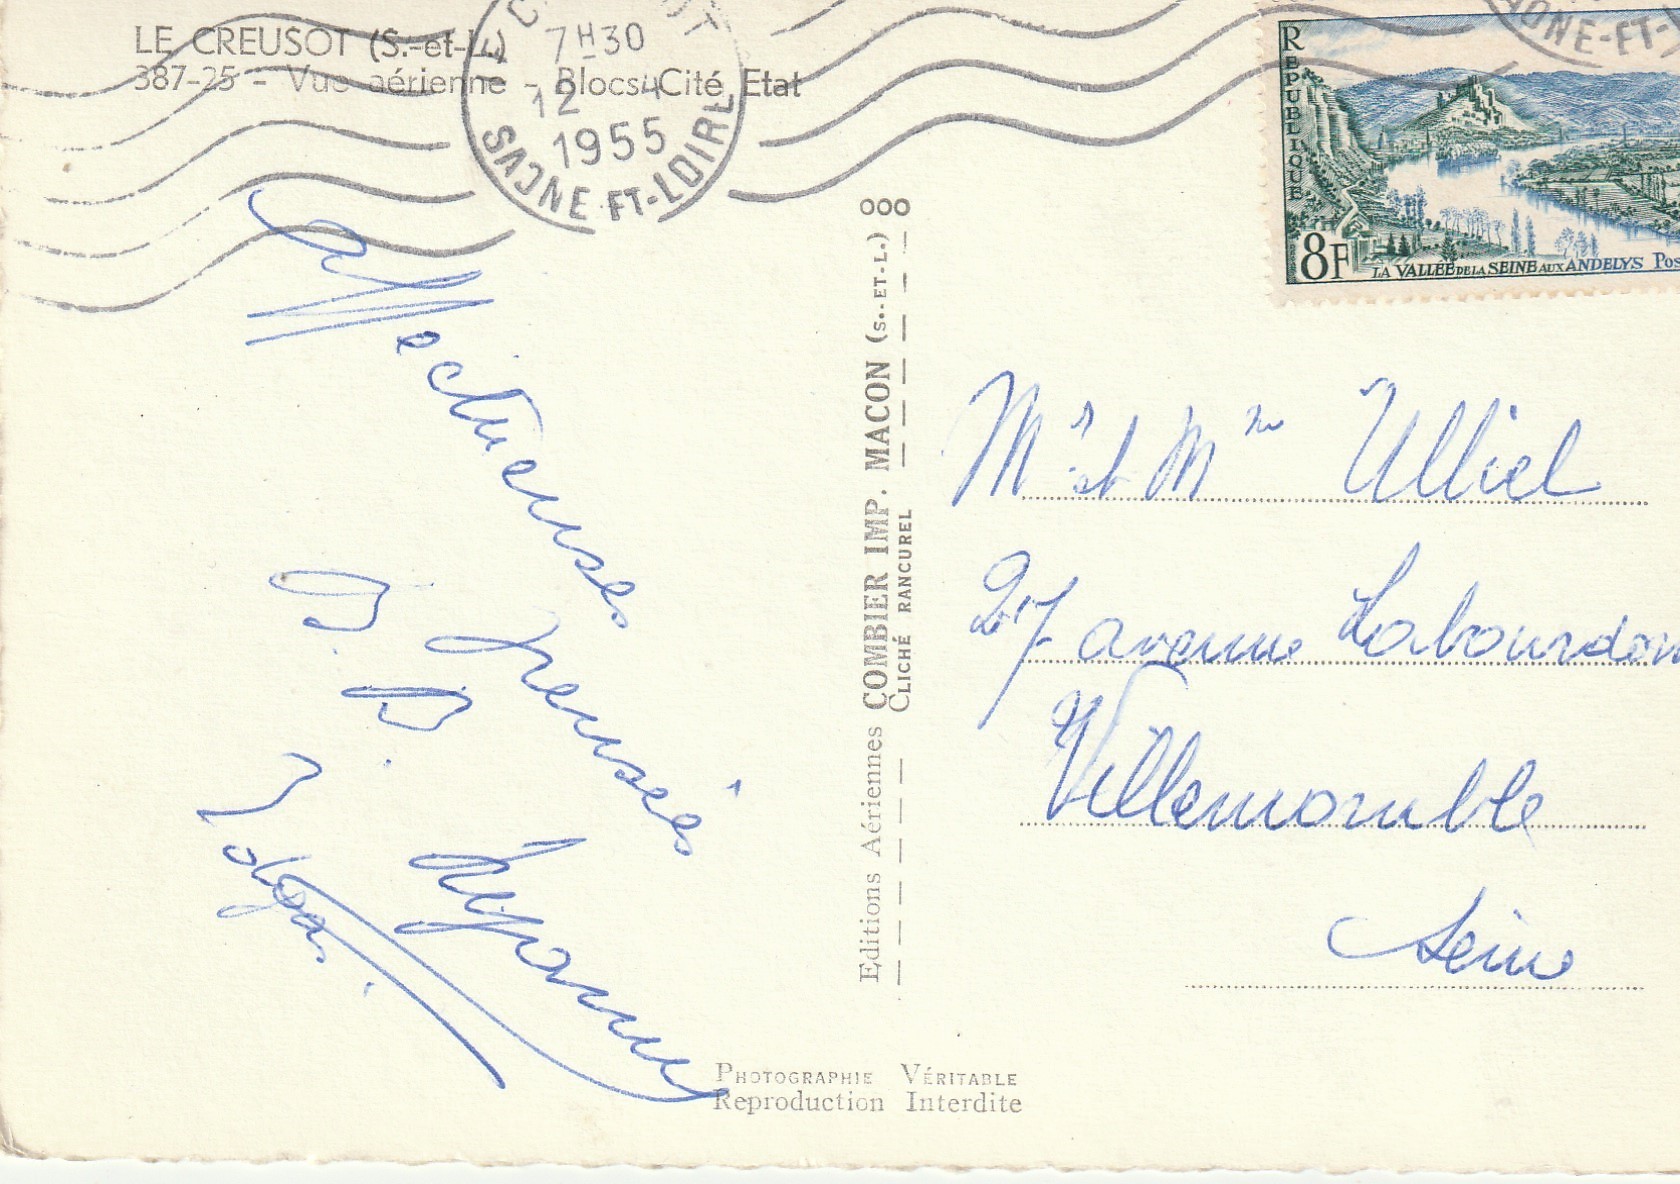 LE CREUSOT (S.-et-L.)
387-25 - Vue aérienne - Blocs Cité Etat
7H30
12 4
1955
SAONE-ET-LOIRE
SAONE-ET-
REPUBLIQUE
8F
LA VALLÉE DE LA SEINE AUX ANDELYS Pos
Affectueuses
pensées
Editions Aériennes COMBIER IMP. MACON (S.-ET-L.)
CLICHÉ RANCUREL
Mr et Mme Ulliel
27 avenue Labourdon
Villemomble
Seine
PHOTOGRAPHIE VÉRITABLE
Reproduction Interdite